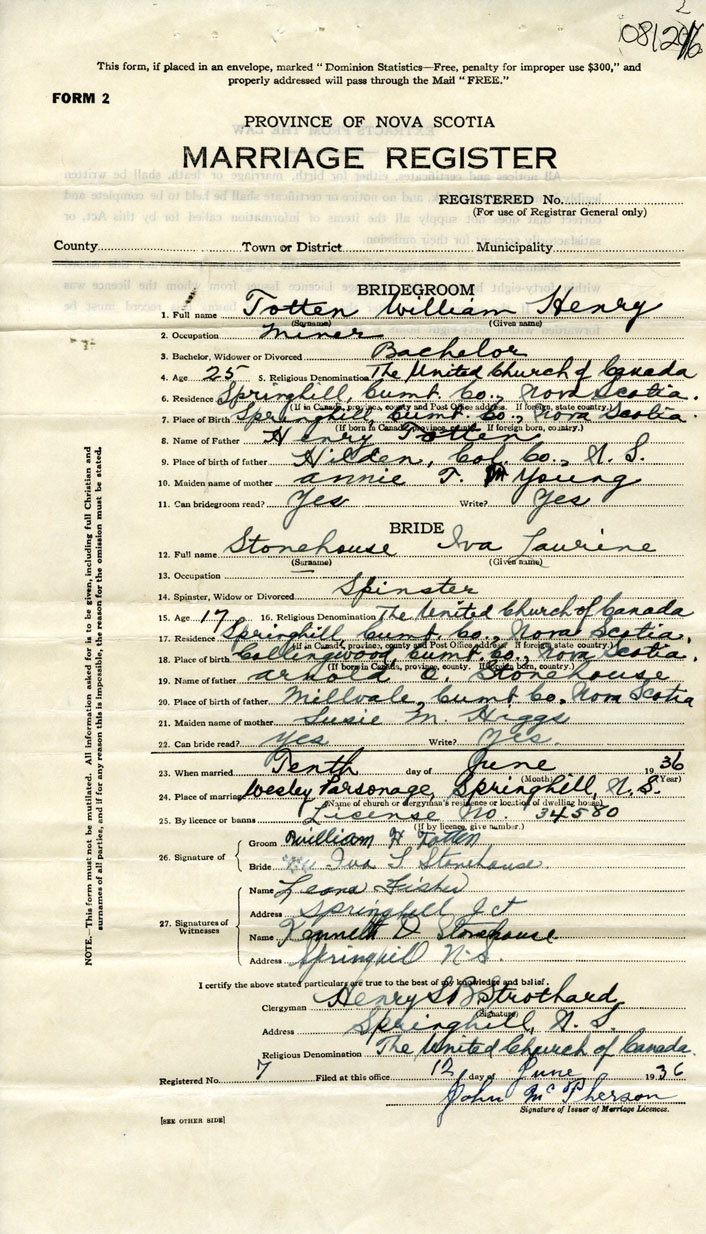 This form, if placed in an envelope, marked "Dominion Statistics—Free, penalty for improper use $300," and
properly addressed will pass through the Mail "FREE."
FORM 2
PROVINCE OF NOVA SCOTIA
MARRIAGE REGISTER
REGISTERED No.
(For use of Registrar General only)
County Town or District Municipality
BRIDEGROOM
1. Full name Totten William Henry
(Surname) (Given name)
2. Occupation Miner
3. Bachelor, Widower or Divorced Bachelor
4. Age 25 5. Religious Denomination The United Church of Canada
6. Residence Springhill, Cumb. Co., Nova Scotia.
(If in Canada, province, county and Post Office address. If foreign, state country.)
7. Place of Birth Springhill, Cumb. Co., Nova Scotia.
(If born in Canada, province, state. If foreign, country.)
8. Name of Father Henry Totten
9. Place of birth of father Hilden, Col. Co., N. S.
10. Maiden name of mother Annie T. Young
11. Can bridegroom read? Yes Write? Yes
BRIDE
12. Full name Stonehouse Iva Laurine
(Surname) (Given name)
13. Occupation
14. Spinster, Widow or Divorced Spinster
15. Age 17 16. Religious Denomination The United Church of Canada
17. Residence Springhill, Cumb. Co., Nova Scotia.
(If in Canada, province, county and Post Office address. If foreign, state country.)
18. Place of birth Collingwood Cumb. Co., Nova Scotia.
(If born in Canada, province, county. If foreign, country.)
19. Name of father Arnold O. Stonehouse
20. Place of birth of father Millvale, Cumb. Co. Nova Scotia
21. Maiden name of mother Susie M. Higgs
22. Can bride read? Yes Write? Yes.
23. When married Tenth day of June 1936
(Month) (Year)
24. Place of marriage Wesley Parsonage, Springhill, N.S.
(Name of church or clergyman's residence or location of dwelling house)
25. By licence or banns License No. 34580
(If by licence, give number.)
26. Signature of Groom William H Totten
Bride Iva L Stonehouse.
27. Signatures of Witnesses
Name Leona Fisher
Address Springhill Jct
Name Kenneth D Stonehouse
Address Springhill N.S.
I certify the above stated particulars are true to the best of my knowledge and belief.
Clergyman Henry S.B. Strothard,
(Signature)
Address Springhill, N. S.
Religious Denomination The United Church of Canada.
Registered No. 7 Filed at this office 12 day of June 1936
John McPherson
Signature of Issuer of Marriage Licences.
[SEE OTHER SIDE]
NOTE.—This form must not be mutilated. All information asked for is to be given, including full Christian and
surnames of all parties, and if for any reason this is impossible, the reason for the omission must be stated.